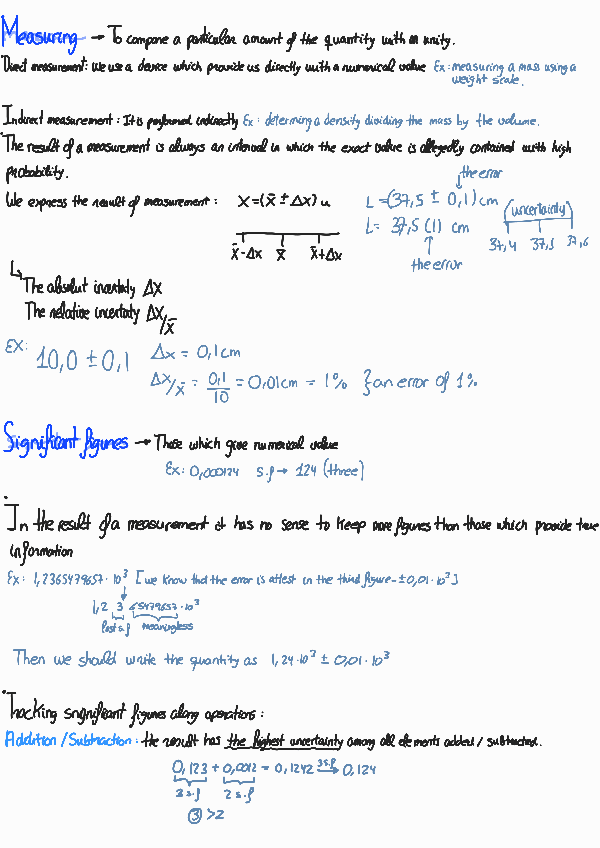 Measuring → To compare a particular amount of the quantity with an unity.
Direct measurement: We use a device which provide us directly with a numerical value Ex: measuring a mass using a weight scale.
Indirect measurement: It is performed indirectly Ex: determing a density dividing the mass by the volume.
The result of a measurement is always an interval in which the exact value is allegedly contained with high
probability.
the error
We express the result of measurement: X=(x̄ ± Δx) u L=(37,5 ± 0,1) cm
(uncertainty)
L= 37,5 (1) cm
x̄-Δx x̄ x̄+Δx 37,4 37,5 37,6
the error
↳ The absolut incertidy Δx
The relative incertidy Δx/x̄
EX: 10,0 ± 0,1 Δx = 0,1cm
Δx/x̄ = 0,1/10 = 0,01cm = 1% }an error of 1%
Significant figures → Those which give numerical value
Ex: 0,000124 s.f → 124 (three)
In the result of a measurement it has no sense to keep more figures than those which provide true
information
Ex: 1,2365479657·10³ [we know that the error is atlest in the third figure - ±0,01·10³]
1,2 3 65479657·10³
last s.f meaningless
Then we should write the quantity as 1,24·10³ ± 0,01·10³
Tracking significant figures along operations:
Addition/Subtraction: the result has the highest uncertainty among all elements added/subtracted.
0,123 + 0,0012 = 0,1242 3 s.f → 0,124
3 s.f 2 s.f
3 >2